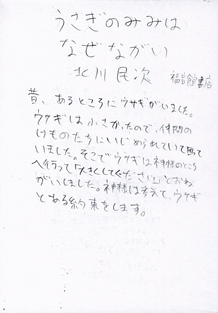 うさぎのみみは
なぜながい
北川民次 福音館書店
昔、あるところにウサギがいました。
ウサギは小さかったので、仲間の
けものたちにいじめられていて困って
いました。そこでウサギは神様のところ
へ行って「大きくしてください」とおね
がいしました。神様は考えて、ウサギ
とある約束をします。